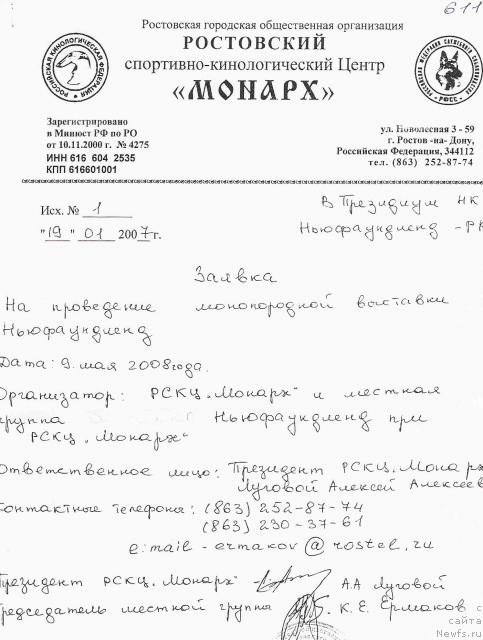 611
Ростовская городская общественная организация
РОСТОВСКИЙ
спортивно-кинологический Центр
«МОНАРХ»
РОССИЙСКАЯ КИНОЛОГИЧЕСКАЯ ФЕДЕРАЦИЯ
РФСС
Зарегистрировано
в Минюст РФ по РО
от 10.11.2000 г. № 4275
ИНН 616 604 2535
КПП 616601001
ул. Новолесная 3 - 59
г. Ростов -на- Дону,
Российская Федерация, 344112
тел. (863) 252-87-74
Исх. № 1
"19" 01 2007г.
В Президиум НК
Ньюфаундленд - РК
Заявка
На проведение монопородной выставки
Ньюфаундленд
Дата: 9. мая 2008 года.
Организатор: РСКЦ „Монарх" и местная
группа Ньюфаундленд при
РСКЦ „Монарх"
Ответственное лицо: Президент РСКЦ „Монарх
Луговой Алексей Алексеев
Контактные телефоны: (863) 252-87-74
(863) 230-37-61
e:mail - ermakov@rostel.ru
Президент РСКЦ „Монарх" А.А Луговой
Председатель местной группы К. Е. Ермаков
с
сайта
Newfs.ru